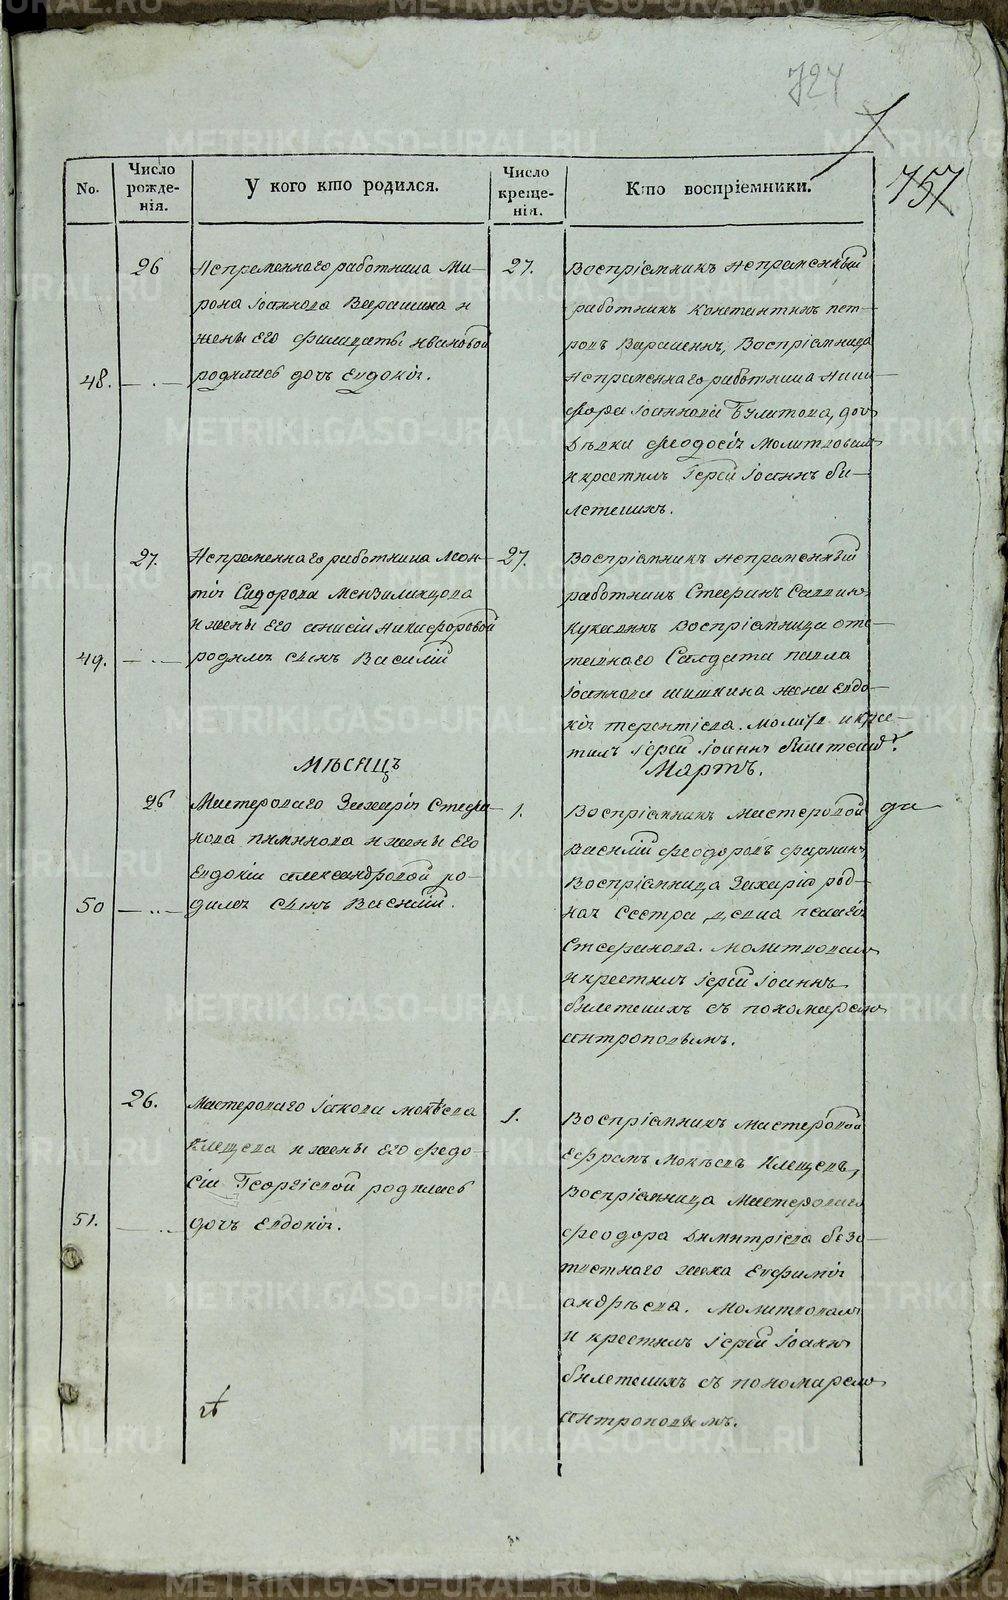 724
757
No.
Число рожде-нія.
У кого кто родился.
Число креще-нія.
Кто воспріемники.
26
Непременнаго работника Ми-
рона Іоаннова Варашина и
жены его Филицаты Ивановой
48. родилась дочь Евдокія.
27.
Воспріемникъ непременный
работникъ Константинъ пет-
ровъ Варашинъ, Воспріемница
непременнаго работника Ники-
фора Іоаннова Булатова, дочь
девка феодосія Молитвовалъ
и крестилъ Іерей Іоаннъ би-
летинъ.
27.
Непременнаго работника Леон-
тія Сидорова Мензилинцова
и жены его анисіи Никифоровой
49. родилъ сынъ Василій
27.
Воспріемникъ непременный
работникъ Стефанъ
Воспріемница отс-
тавнаго Салдата павла
Іоаннова шишкина жена Евдо-
кія терентіева. молит. и кре-
тилъ Іерей Іоаннъ
Мѣсяцъ
Мартъ.
26
Мастероваго Захарія Стефа-
нова пиминова и жены Его
Евдокіи александровой ро-
50 дился сынъ Василій.
1.
Воспріемникъ мастеровой
Василій феодоровъ
Воспріемница Захарія род-
ная Сестра, девка
Стефанова. молитвовалъ
и крестилъ Іерей Іоаннъ
билетинъ съ пономаремъ
антроповымъ.
26.
Мастероваго Іакова мокѣева
Клещева и жены Его федо-
сіи Георгіевой родилась
51. дочь Евдокія.
1.
Воспріемникъ мастеровой
Ефремъ мокѣевъ Клещевъ,
Воспріемница Мастероваго
феодора Димитріева безо-
тветнаго жена Евфимія
андрѣева. молитвовалъ
и крестилъ Іерей Іоаннъ
билетинъ съ пономаремъ
антроповымъ.
METRIKI.GASO-URAL.RU